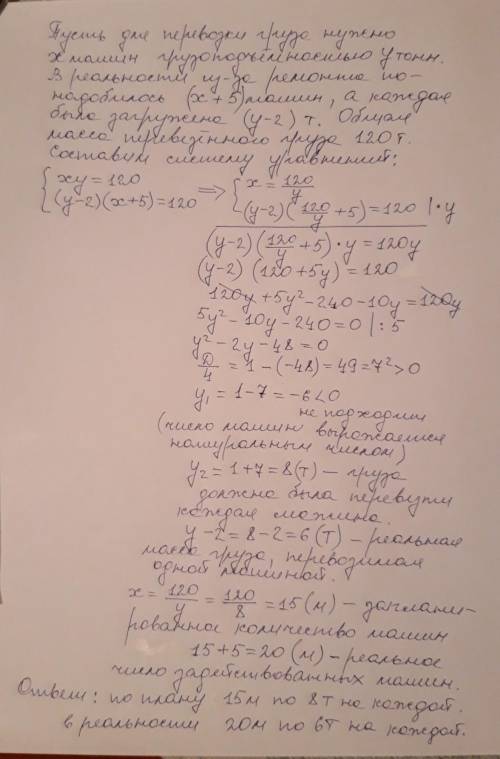 Пусть для перевозки груза нужно
x машин грузоподъёмностью y тонн.
В реальности из-за ремонта по-
надобилось (x+5) машин, а каждая
была загружена (y-2) т. Общая
масса перевезённого груза 120 т.
Составим систему уравнений:
{ xy = 120 ⟹ { x = 120/y
(y-2)(x+5) = 120 (y-2)(120/y + 5) = 120 | · y
(y-2)(120/y + 5) · y = 120y
(y-2)(120+5y) = 120
120y + 5y² - 240 - 10y = 120y
5y² - 10y - 240 = 0 | : 5
y² - 2y - 48 = 0
D/4 = 1 - (-48) = 49 = 7² > 0
y₁ = 1 - 7 = -6 < 0
не подходит
(число машин выражается
натуральным числом)
y₂ = 1 + 7 = 8 (т) – груза
должна была перевезти
каждая машина.
y - 2 = 8 - 2 = 6 (т) – реальная
масса груза, перевозимая
одной машиной.
x = 120/y = 120/8 = 15 (м) – заплани-
рованное количество машин
15 + 5 = 20 (м) – реальное
число задействованных машин.
Ответ: по плану 15м по 8т на каждой.
в реальности 20м по 6т на каждой.